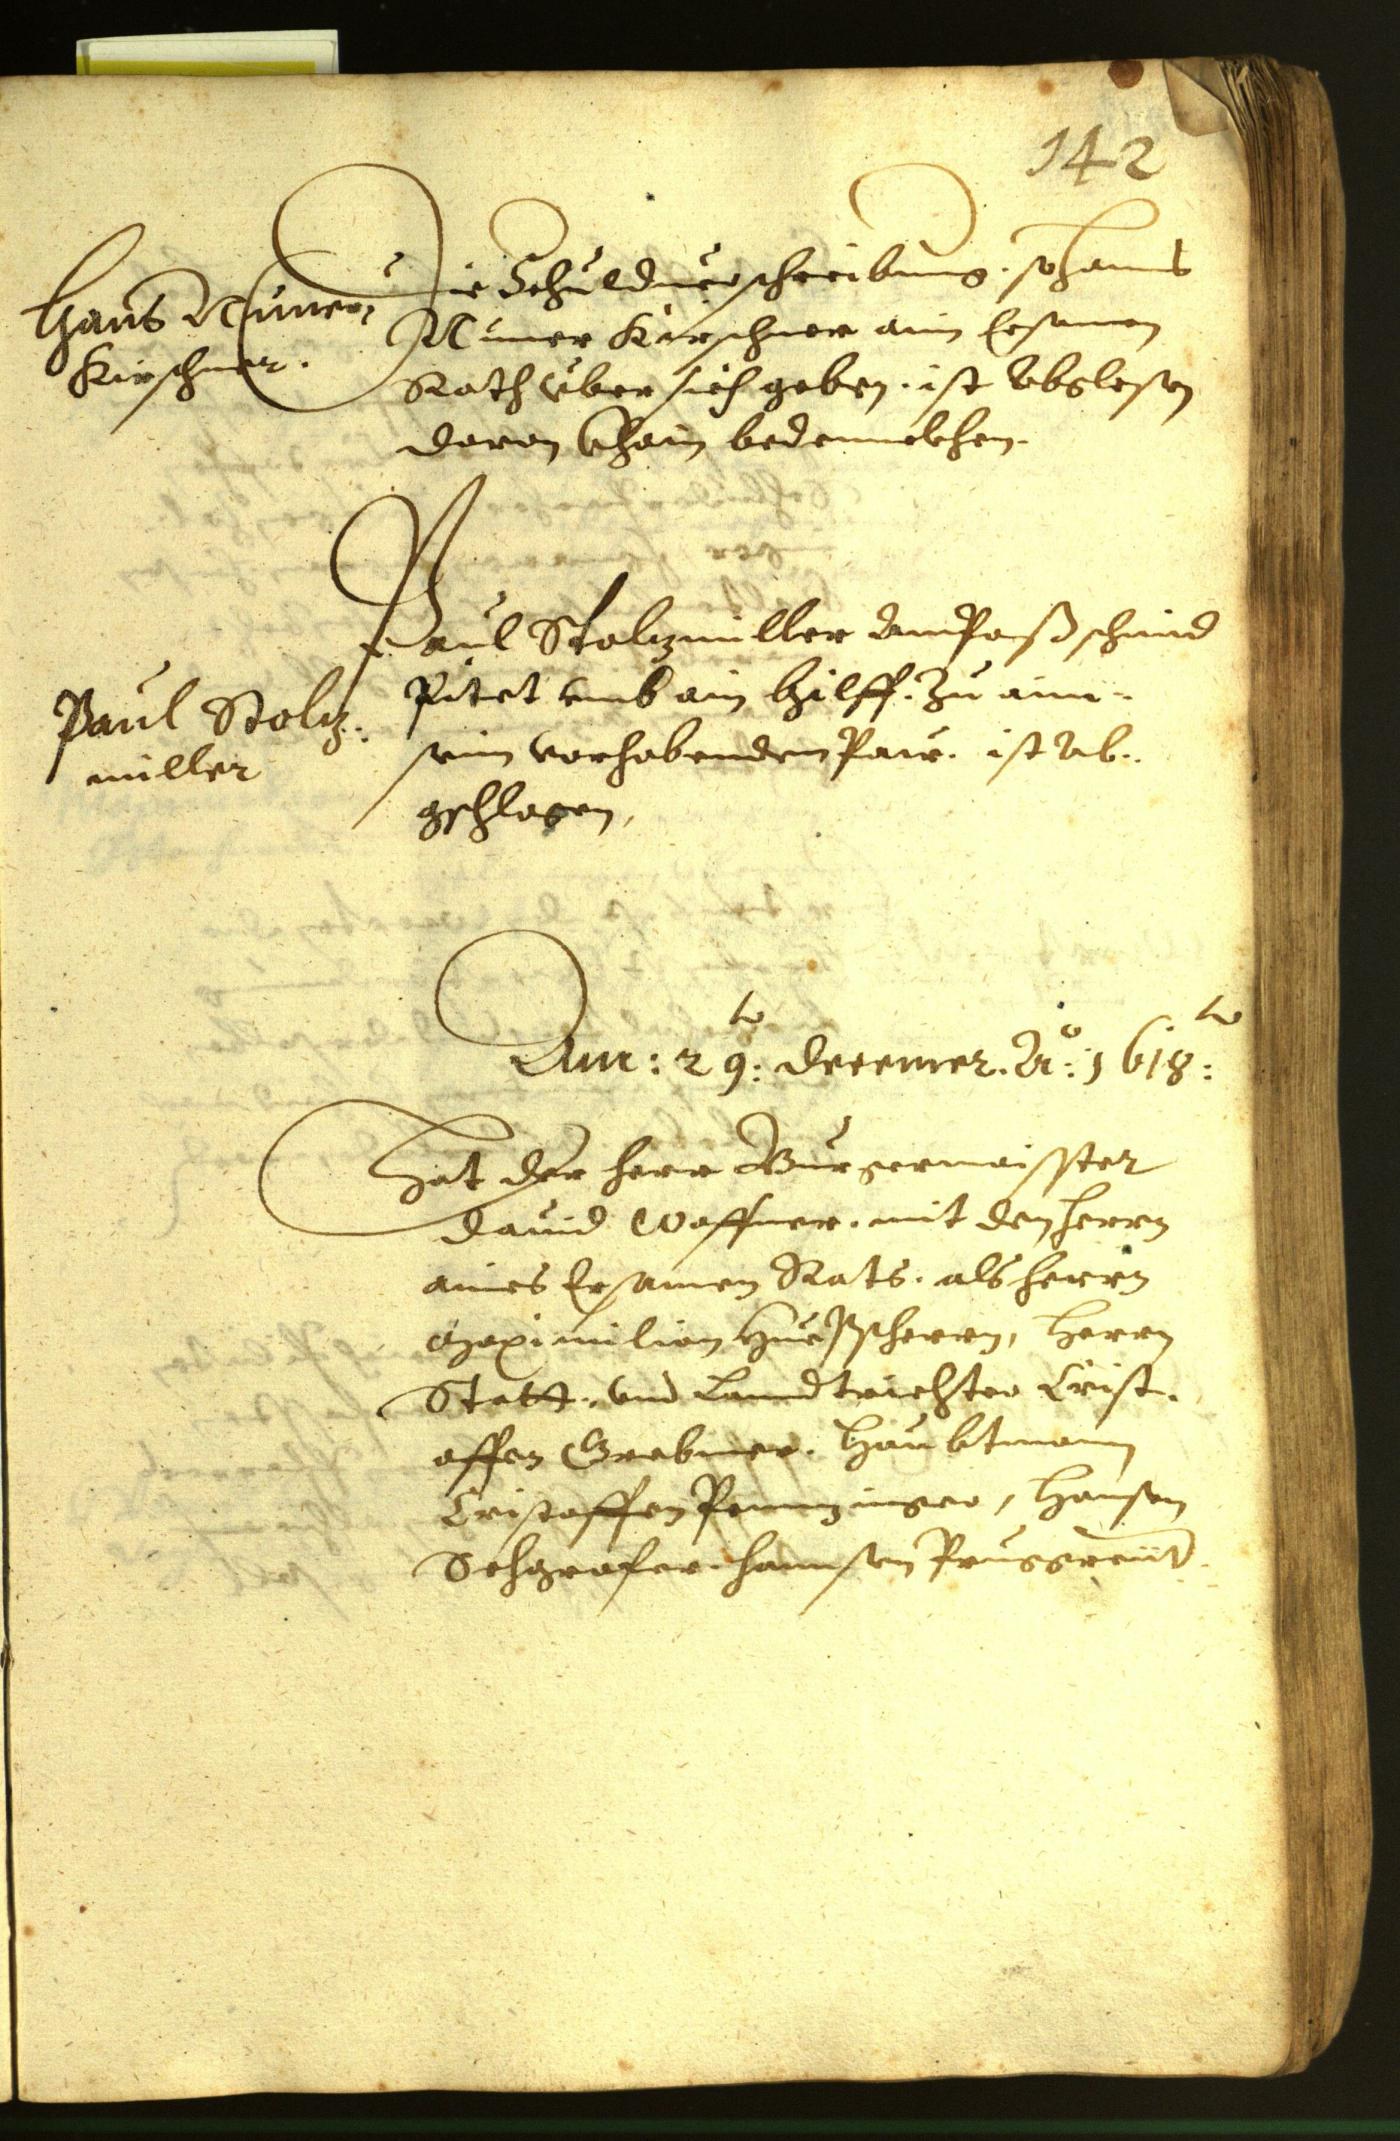 142
Hans Muner,
Kirschner.
Die Schuldverschreibung. so Hanns
Muner Kirschner aim Ersamen
Rath vber sich geben. ist abglesen
daran khain bedennckhen.
Paul Stolz:
müller
Paul Stolzmüller schmid
Pitet umb ain hilff. Zu aim
seim vorhabenden Paw. ist Ab:
gschlagen,
Am: 29: decemer. Ao: 1618:
Hat der herr Burgermaisster
dauid Waffner. mit den herrn
aines Ersamen Rats. als herrn
Maximilian herrn
Statt. vnd Lanndtrichter Crist.
offen Grabmer. Haubtman
Cristoffen Penninger, Hansen
Schgrafer. hannsen